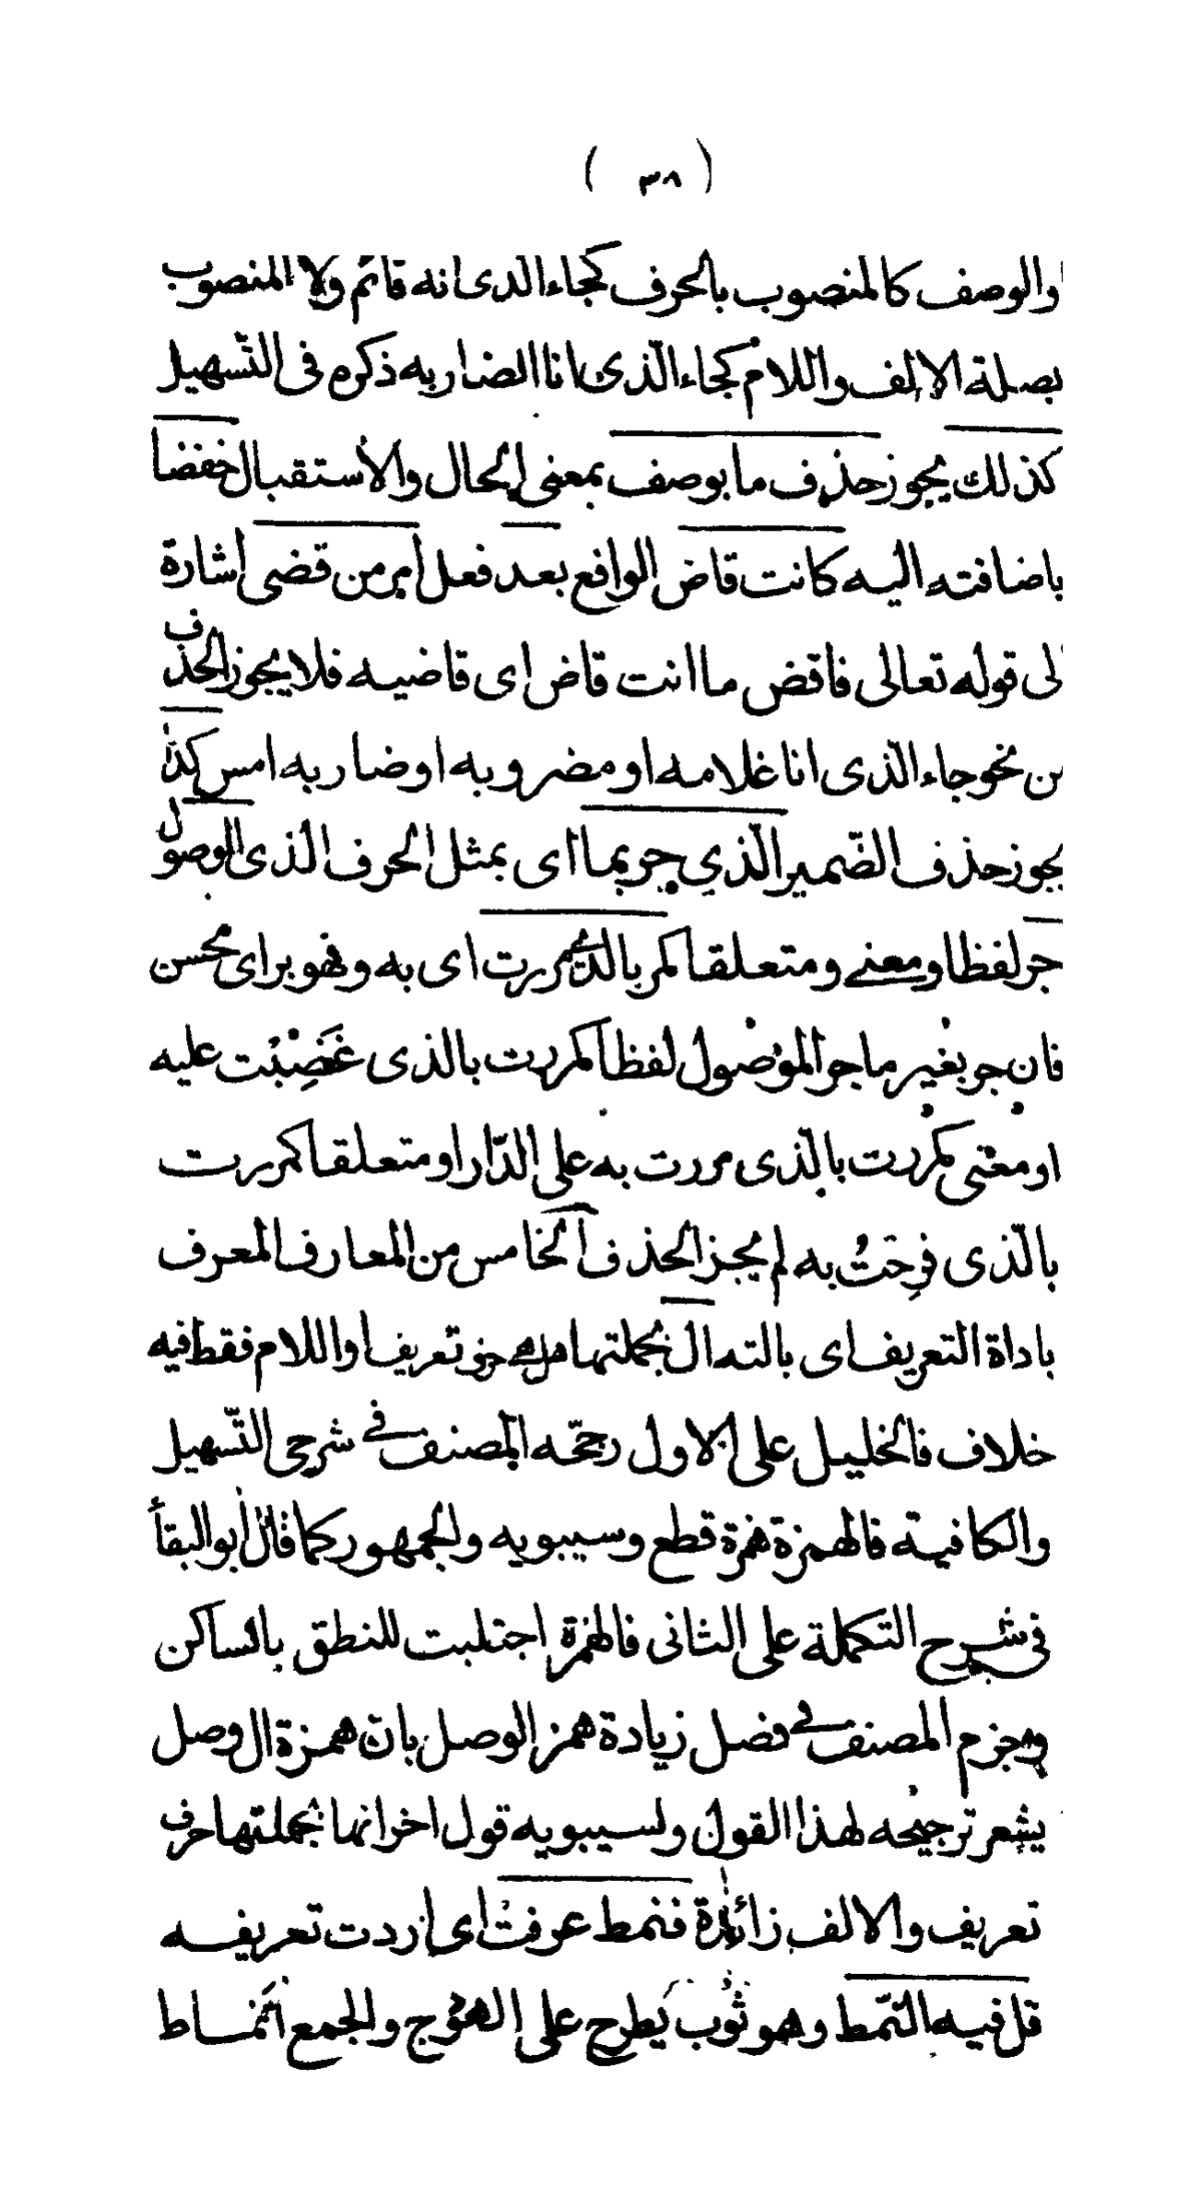 ( ٣٨ )
والوصف كالمنصوب بالحرف كجاء الذى انه قائم ولا المنصوب
بصلة الالف واللام كجاء الذى انا الضاربه ذكره فى التّسهيل
كذلك يجوز حذف ما بوصف بمعنى الحال والاستقبال خفضا
باضافته اليه كانت قاض الواقع بعد فعل امر من قضى اشارة
لى قوله تعالى فاقض ما انت قاض اى قاضيه فلا يجوز الحذف
من نحو جاء الّذى انا غلامه او مضروبه او ضاربه امس كذا
يجوز حذف الضّمير الّذي جر بما اى بمثل الحرف الذى الموصول
جر لفظا ومعنى ومتعلقا كمر بالذى مررت اى به وفهو بر اى محسن
فان جر بغير ما جر الموصول لفظا كمررت بالذى غَضِبْت عليه
او معنى كمررت بالّذى مررت به على الدّار او متعلقا كمررت
بالّذى فرِحتُ به لم يجز الحذف الخامس من المعارف المعرف
باداة التعريف اى بالته ال بجملتها حرف تعريف او اللام فقط فيه
خلاف فالخليل على الاول رجحّه المصنف فى شرحى التّسهيل
والكافية فالهمزة همزة قطع وسيبويه والجمهور كما قال ابو البقاء
فى شرح التكملة على الثانى فالهمزة اجتلبت للنطق بالساكن
وجزم المصنف فى فضل زيادة همز الوصل بان همزة ال وصل
يشعر ترجيحه لهذا القول ولسيبويه قول اخر انها بجملتها حرف
تعريف والالف زائدة فنمط عرفت اى اردت تعريفه
قل فيه النّمط وهو ثوب يَطرح على الهودج والجمع انماط